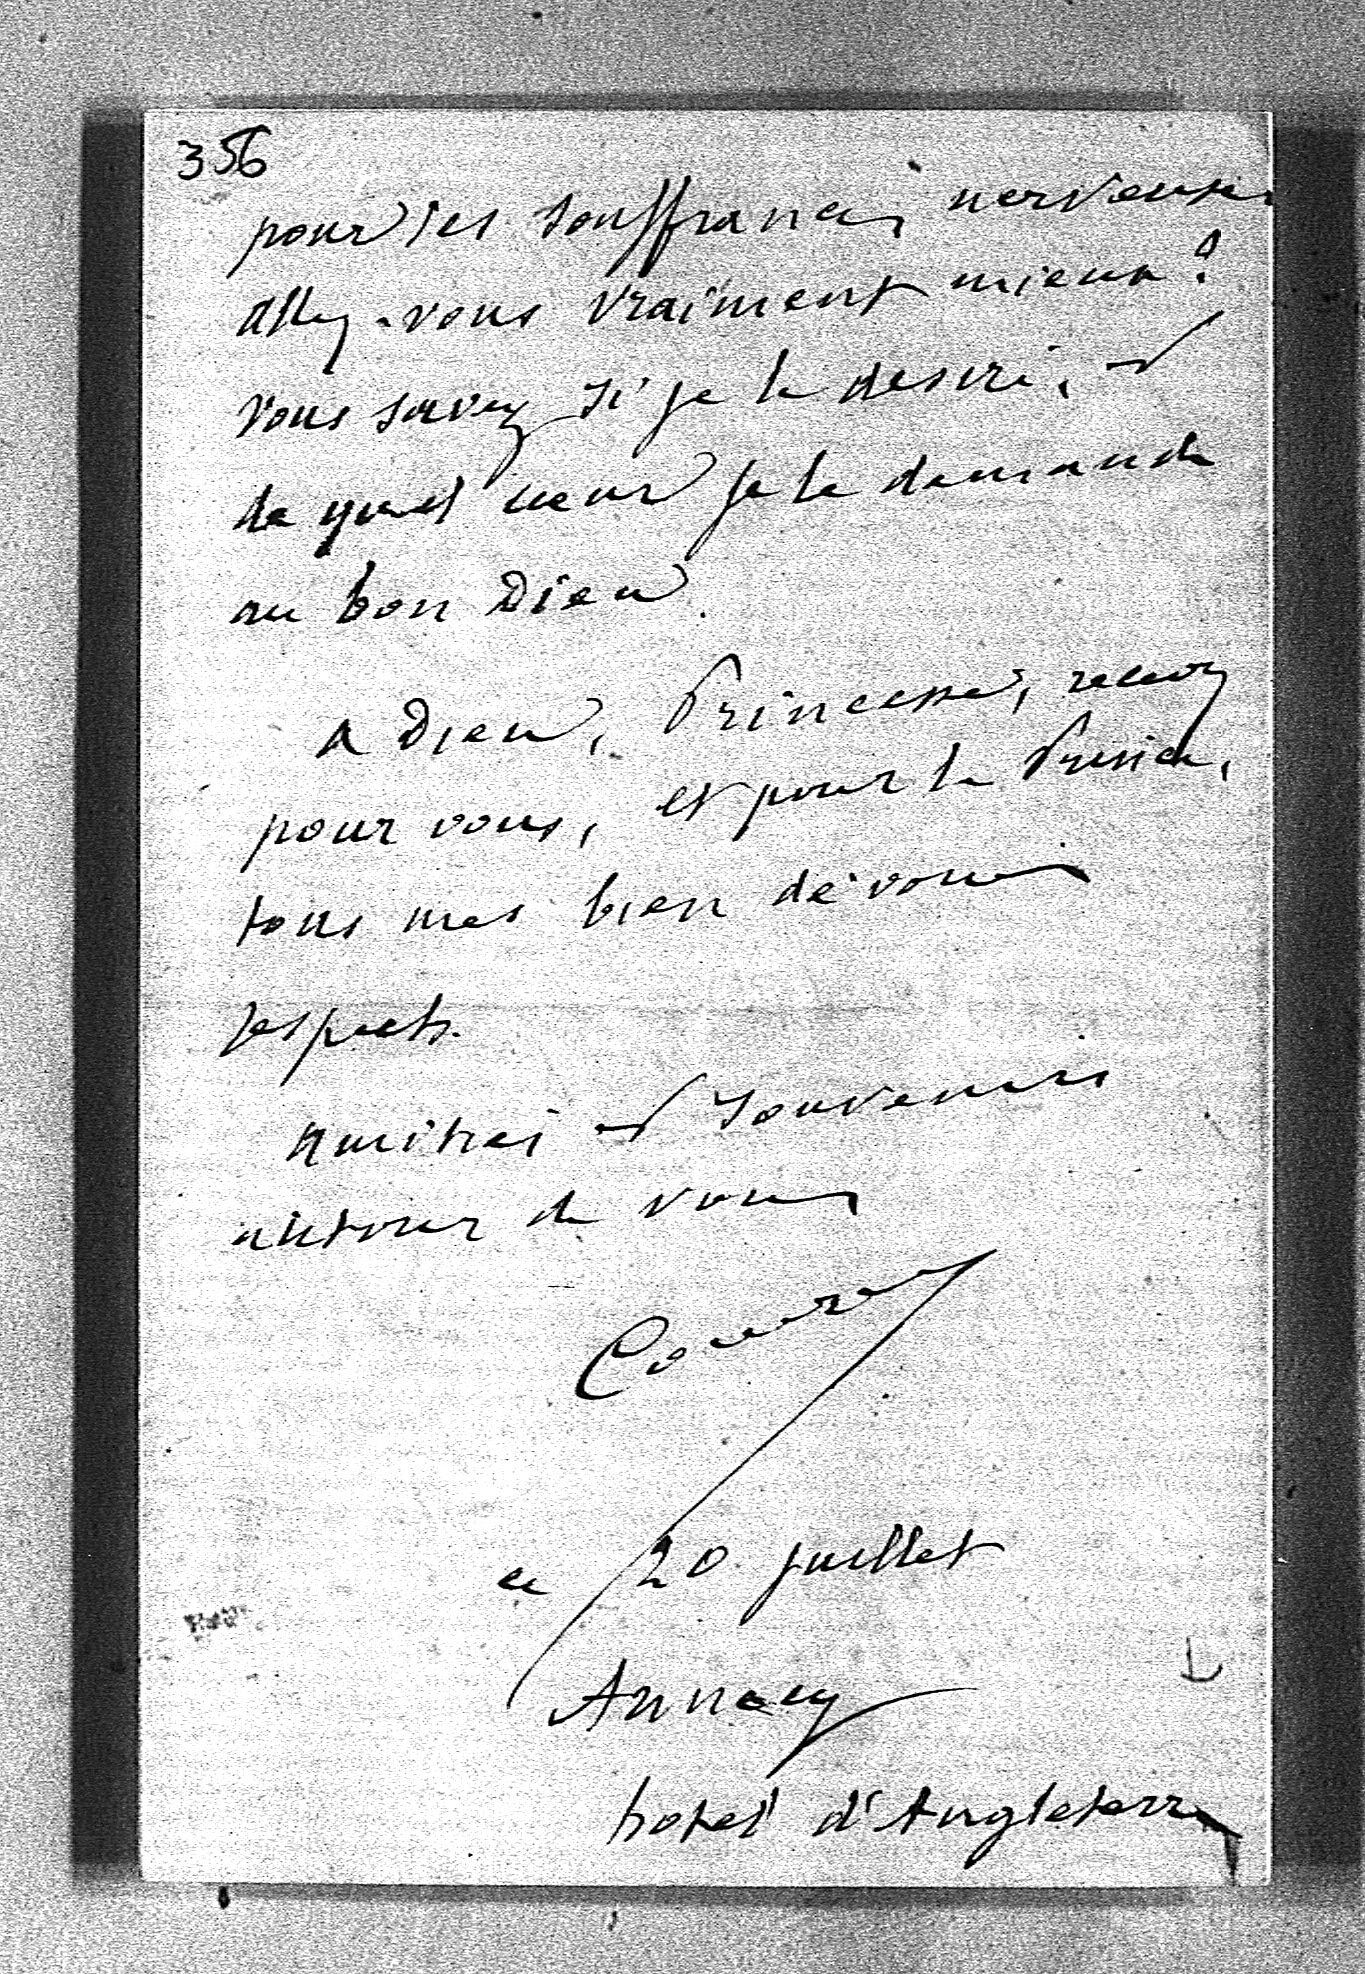 356
pour les souffrances nerveuses
allez-vous vraiment mieux?
vous savez si je le desire, et
de quel cœur je le demande
au bon Dieu.
A Dieu, Princesse, recevez
pour vous, et pour le Prince,
tous mes bien dévoués
respects.
Amitiés et souvenirs
autour de vous
ce 20 juillet
Annecy
hotel d'Angleterre